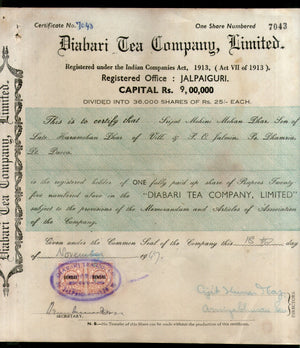 Certificate No. 7043
One Share Numbered 7043
Diabari Tea Company, Limited.
Registered under the Indian Companies Act, 1913, (Act VII of 1913).
Registered Office : JALPAIGURI.
CAPITAL Rs. 9,00,000
DIVIDED INTO 36,000 SHARES OF Rs. 25/- EACH.
This is to certify that Srijut Mohini Mohan Dhar, Son of
Late Haramohan Dhar of Vill & P. O. Ps. Dhamrai
Dt. Dacca
is the registered holder of ONE fully paid up share of Rupees Twenty
five numbered above in the "DIABARI TEA COMPANY, LIMITED"
subject to the provisions of the Memorandum and Articles of Association
of the Company.
Given under the Common Seal of the Company this day
of November 1947.
SECRETARY.
N. B.—No Transfer of this Share can be made without the production of this certificate.
Diabari Tea Company, Limited.